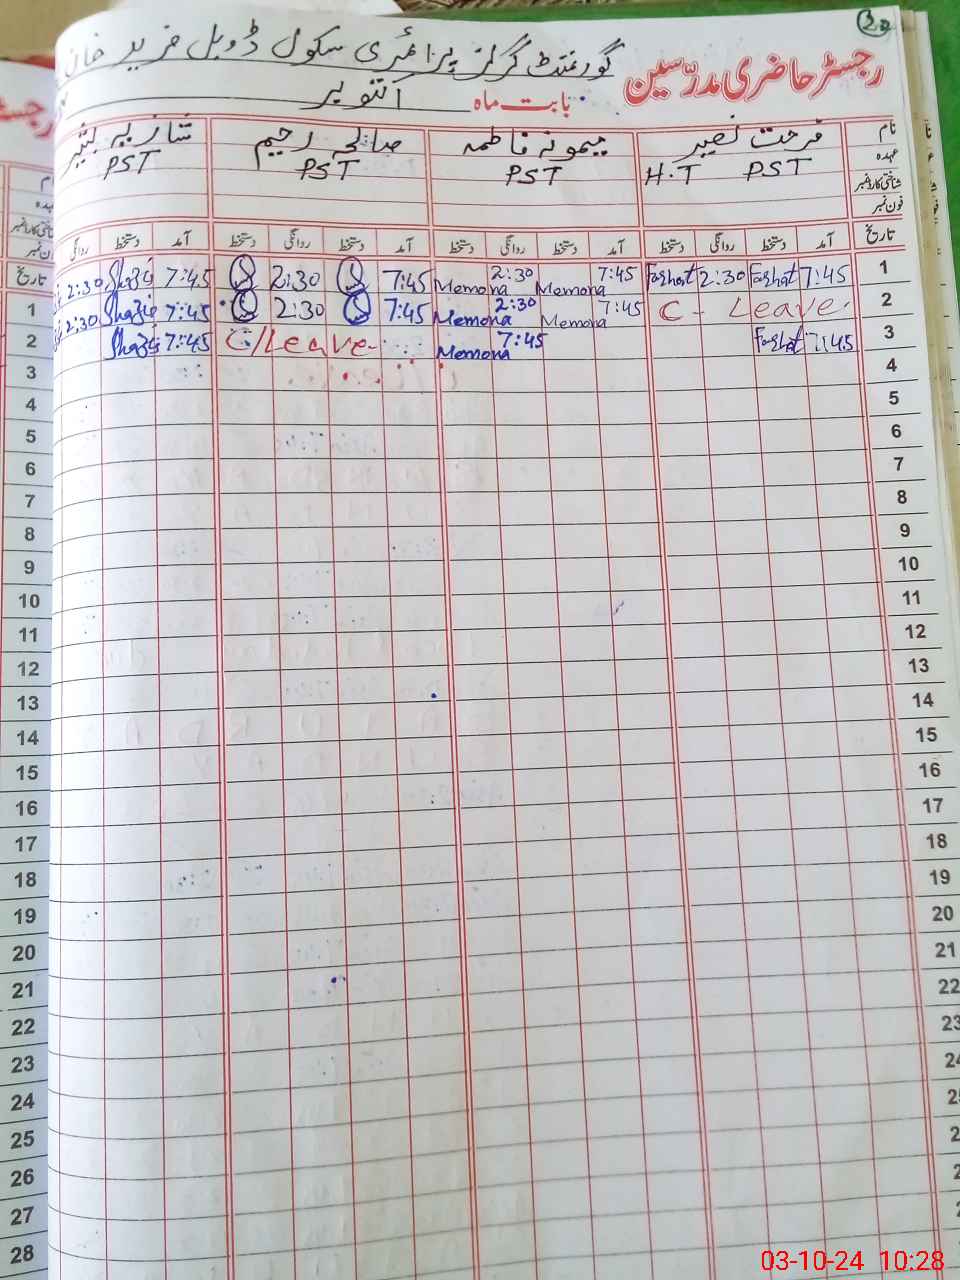 30
رجسٹر حاضری مدرسین
گورنمنٹ گرلز پرائمری سکول ڈوبل فرید خان
بابت ماہ اکتوبر
نام فرحت نصیر میمونہ فاطمہ صالحہ رحیم
عہدہ H.T PST PST PST PST
شناختی کارڈ نمبر
فون نمبر
تاریخ آمد دستخط روانگی دستخط آمد دستخط روانگی دستخط آمد دستخط روانگی دستخط آمد دستخط روانگی
1 7:45 Farhat 2:30 Farhat 7:45 Memona 2:30 Memona 7:45 2:30 7:45 Shazia 2:30
2 C - Leave 7:45 Memona 2:30 Memona 7:45 2:30 7:45 Shazia 2:30
3 7:45 Farhat 7:45 Memona C/Leave 7:45 Shazia
4
5
6
7
8
9
10
11
12
13
14
15
16
17
18
19
20
21
22
23
نام
عہدہ
شناختی کارڈ نمبر
فون نمبر
تاریخ
1
2
3
4
5
6
7
8
9
10
11
12
13
14
15
16
17
18
19
20
21
22
23
24
25
26
27
28
03-10-24 10:28